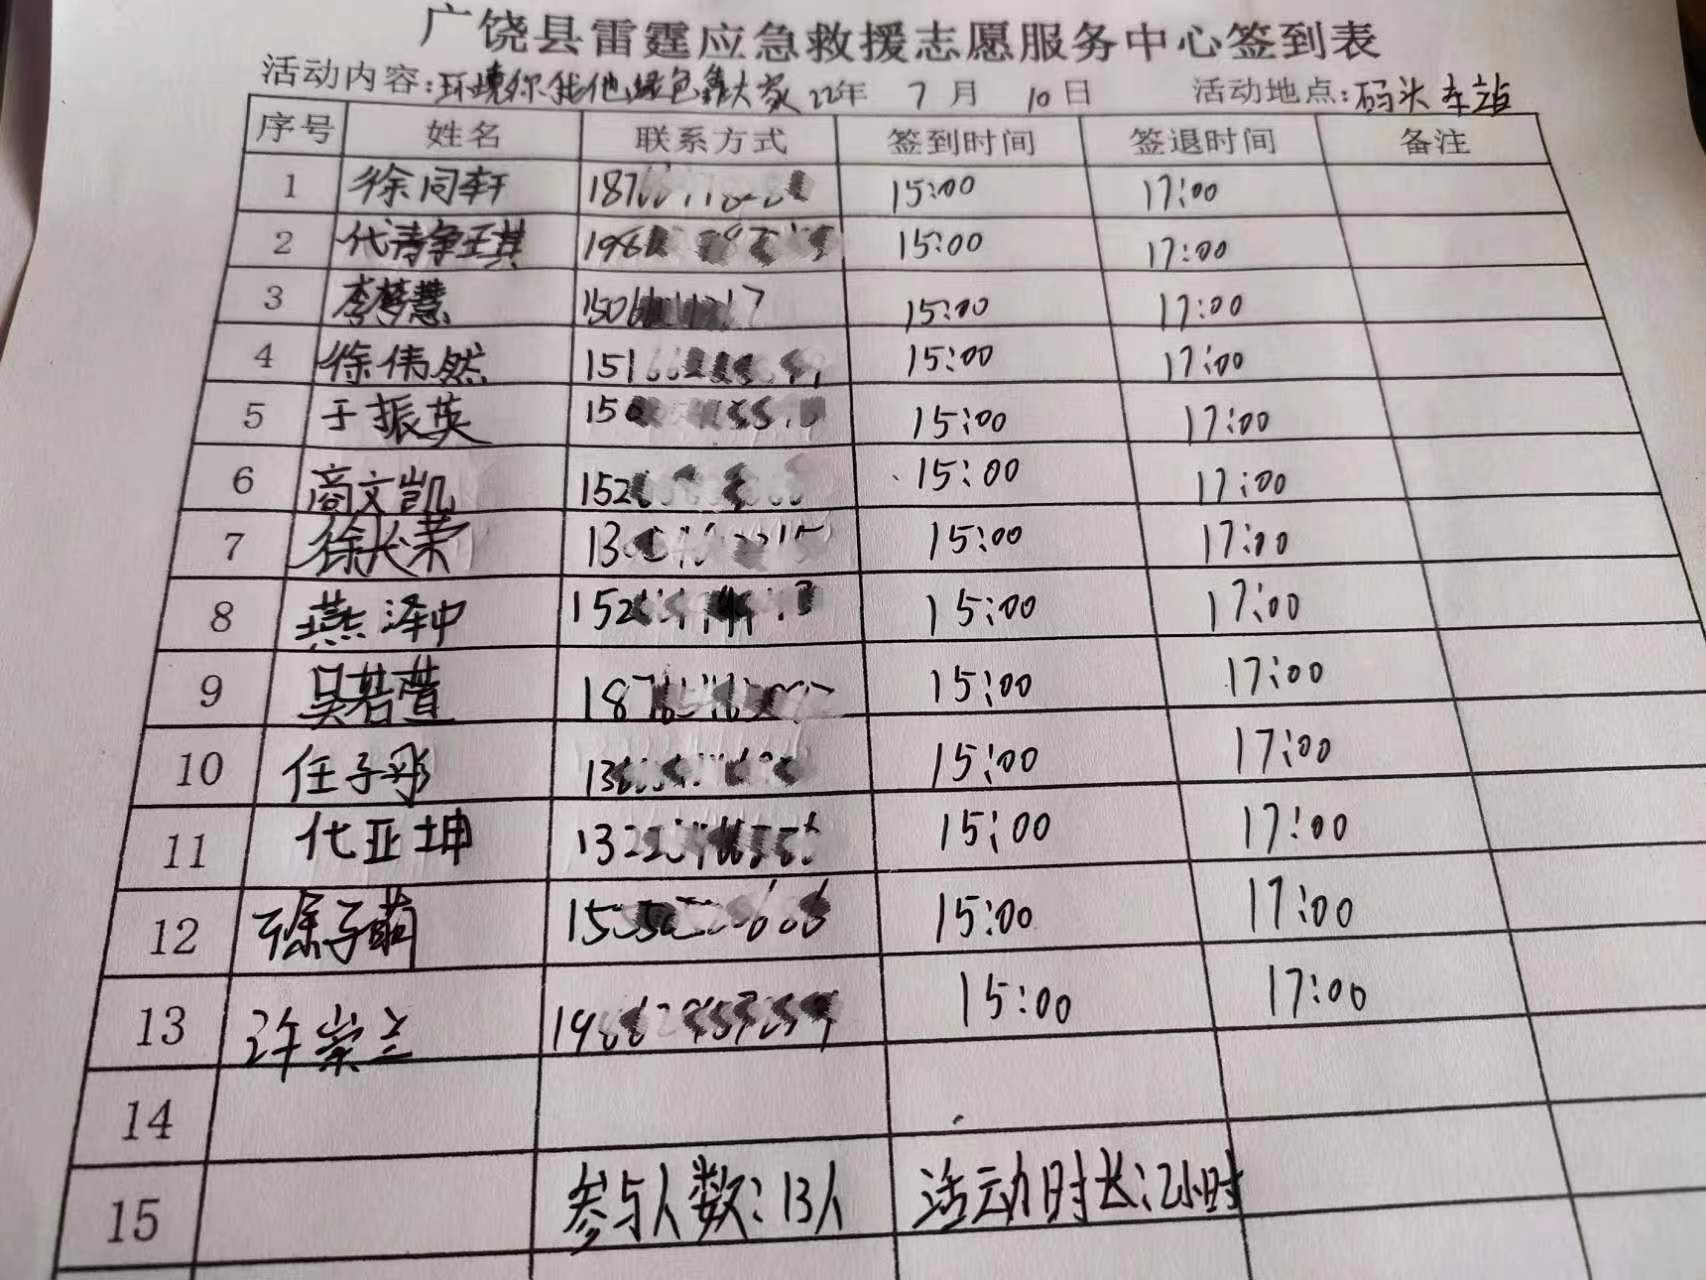 广饶县雷霆应急救援志愿服务中心签到表
活动内容:环境你我他绿色靠大家 22年 7月 10日 活动地点:码头车站
序号 姓名 联系方式 签到时间 签退时间 备注
1 徐同轩 15:00 17:00
2 代静琪 15:00 17:00
3 李梦慧 15:00 17:00
4 徐伟然 15:00 17:00
5 于振英 15:00 17:00
6 商文凯 15:00 17:00
7 徐长荣 15:00 17:00
8 燕泽中 15:00 17:00
9 吴若萱 15:00 17:00
10 任子彤 15:00 17:00
11 代亚坤 15:00 17:00
12 子萌 15:00 17:00
13 许崇兰 15:00 17:00
14
15 参与人数:13人 活动时长:2小时